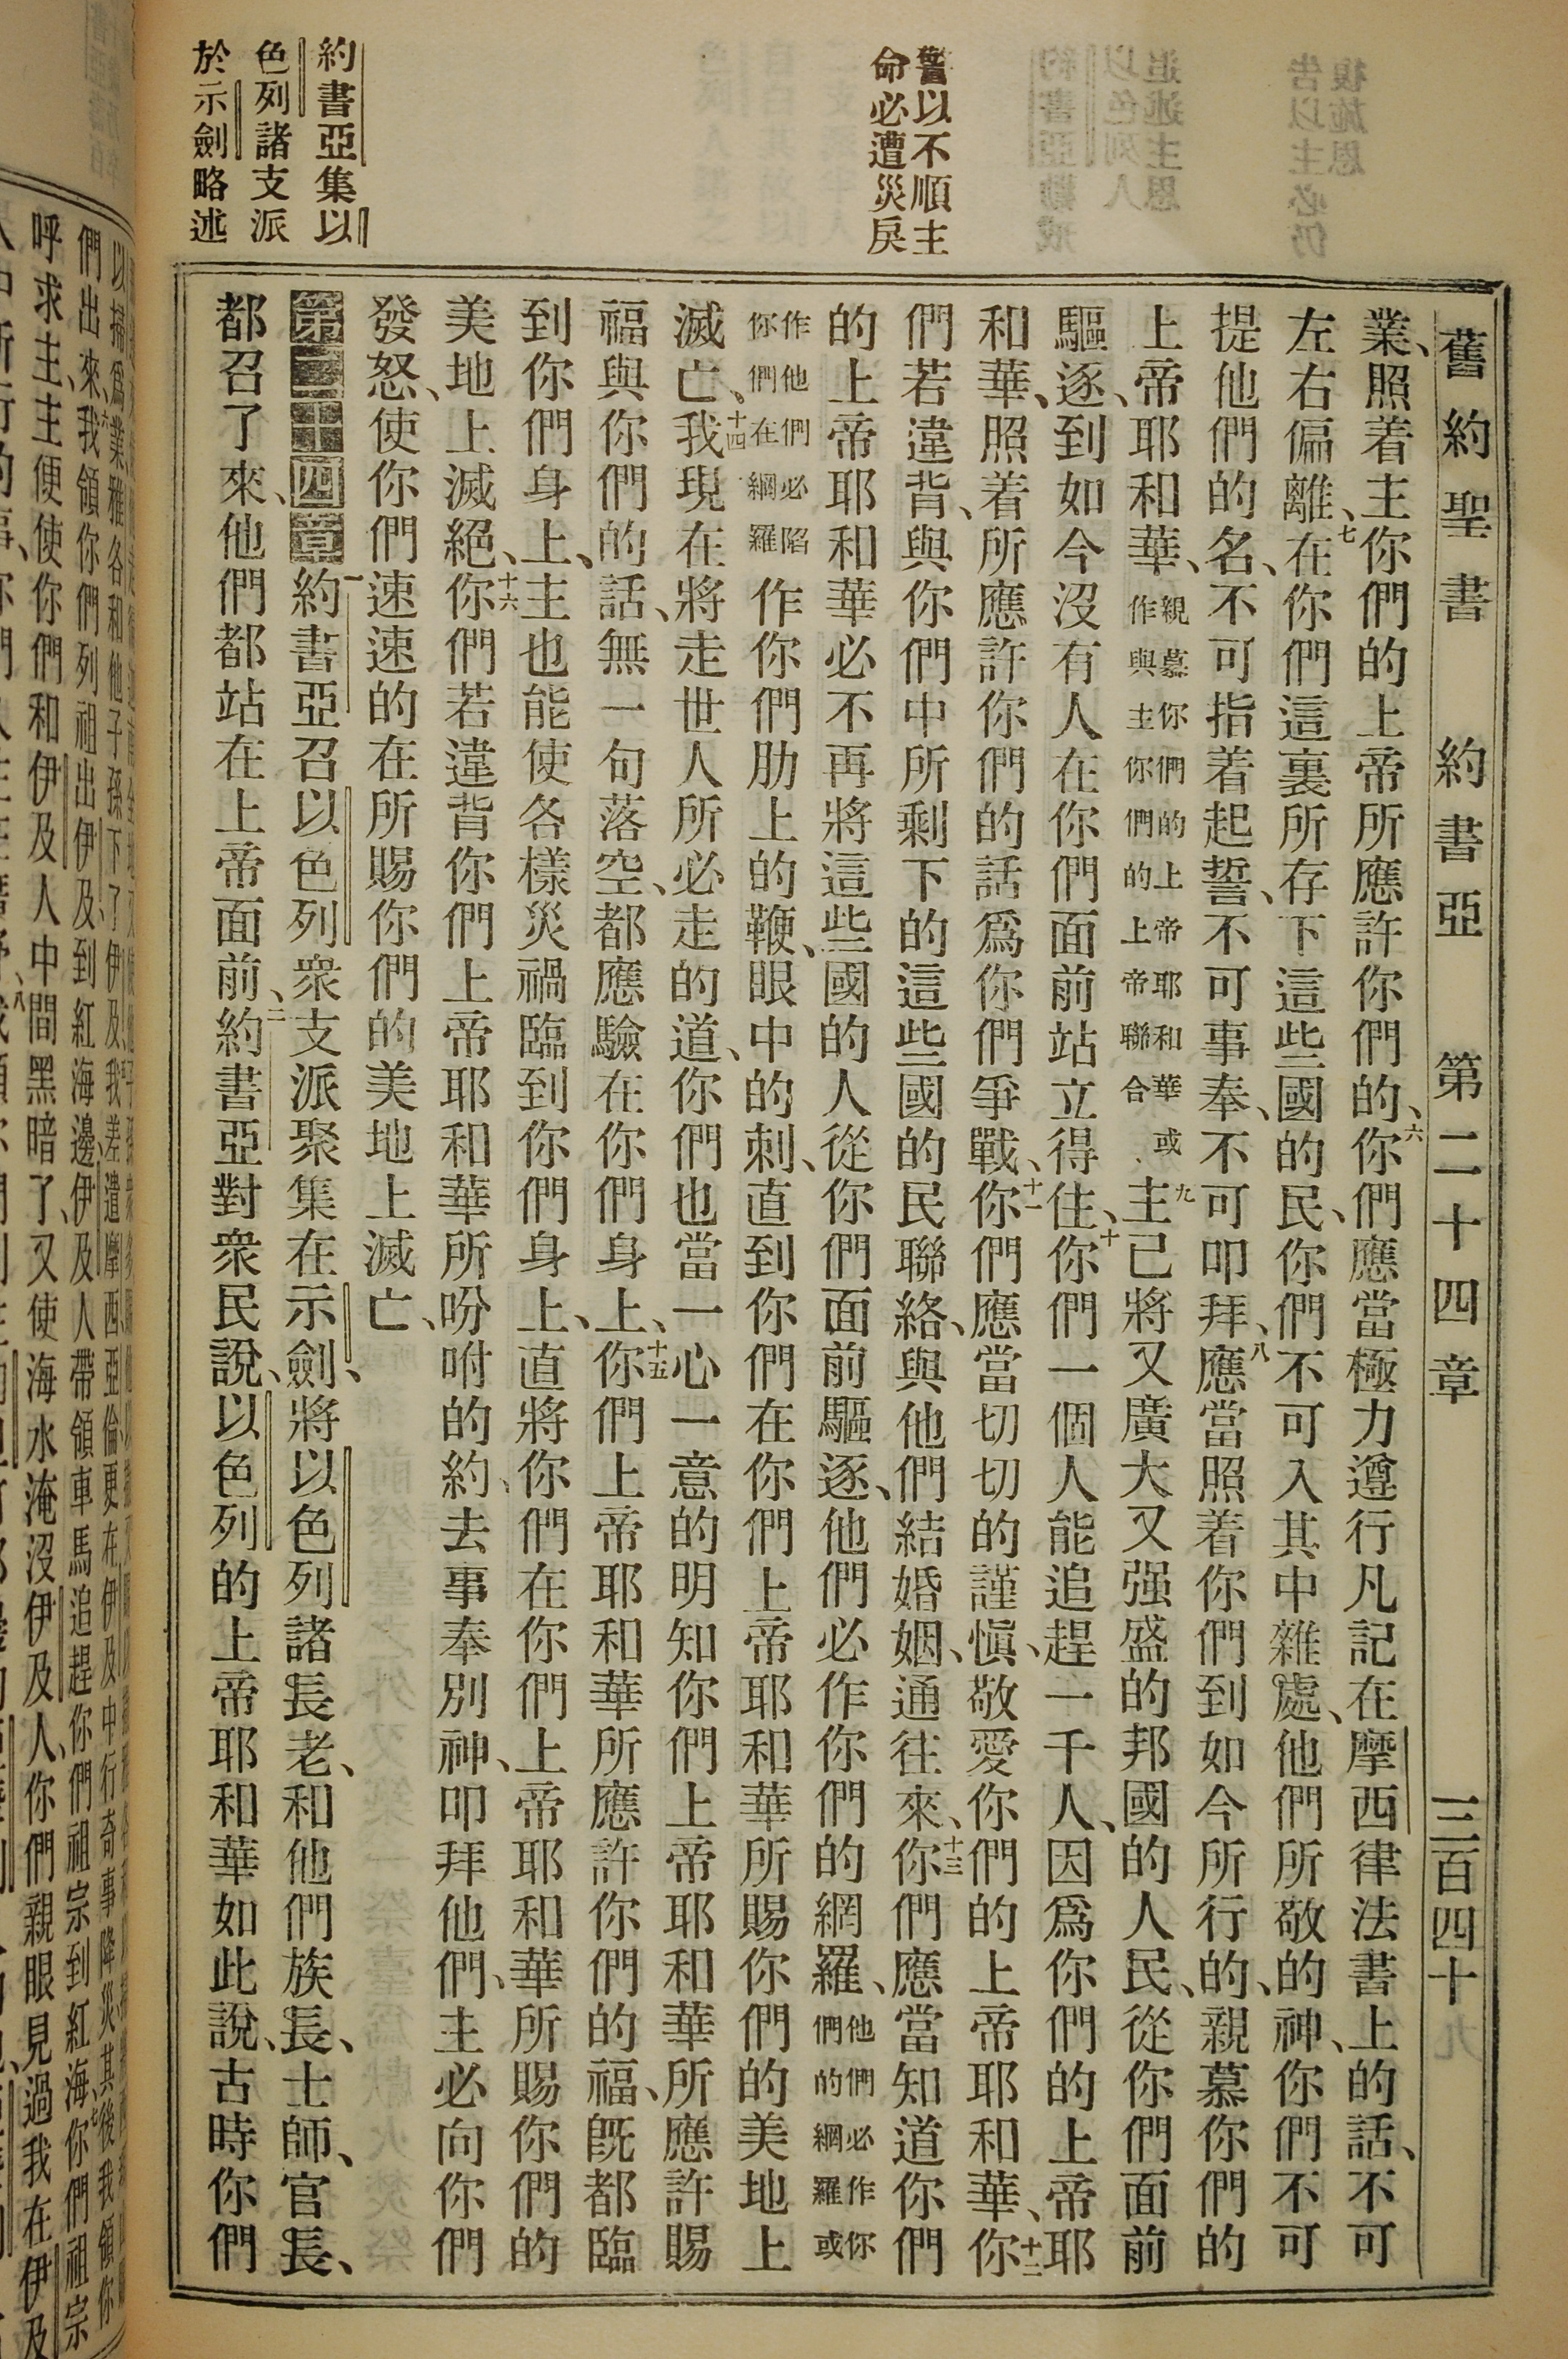 舊約聖書 約書亞 第二十四章 三百四十九
警以不順主
命必遭災戾
約書亞集以
色列諸支派
於示劍略述
業、照着主你們的上帝所應許你們的、六你們應當極力遵行凡記在摩西律法書上的話、不可
左右偏離、七在你們這裏所存下這些國的民、你們不可入其中雜處、他們所敬的神、你們不可
提他們的名、不可指着起誓、不可事奉、不可叩拜、八應當照着你們到如今所行的、親慕你們的
上帝耶和華、親慕你們的上帝耶和華或作與主你們的上帝聯合九主已將又廣大又强盛的邦國的人民、從你們面前
驅逐、到如今沒有人在你們面前站立得住、十你們一個人能追趕一千人、因爲你們的上帝耶
和華、照着所應許你們的話爲你們爭戰、十一你們應當切切的謹愼、敬愛你們的上帝耶和華、十二你
們若違背、與你們中所剩下的這些國的民聯絡、與他們結婚姻、通往來、十三你們應當知道你們
的上帝耶和華必不再將這些國的人從你們面前驅逐、他們必作你們的網羅、他們必作你們的網羅或
作他們必陷你們在網羅作你們肋上的鞭、眼中的刺、直到你們在你們上帝耶和華所賜你們的美地上
滅亡、十四我現在將走世人所必走的道、你們也當一心一意的明知你們上帝耶和華所應許賜
福與你們的話、無一句落空、都應驗在你們身上、十五你們上帝耶和華所應許你們的福、旣都臨
到你們身上、主也能使各樣災禍臨到你們身上、直將你們在你們上帝耶和華所賜你們的
美地上滅絕、十六你們若違背你們上帝耶和華所吩咐的約、去事奉別神、叩拜他們、主必向你們
發怒、使你們速速的在所賜你們的美地上滅亡、
第二十四章 一約書亞召以色列衆支派聚集在示劍、將以色列諸長老、和他們族長、士師、官長、
都召了來、他們都站在上帝面前、二約書亞對衆民說、以色列的上帝耶和華如此說、古時你們
們出來、六我領你們列祖出伊及到紅海邊、伊及人帶領車馬追趕你們祖宗到紅海、七你們祖宗
呼求主、主便使你們和伊及人中間黑暗了、又使海水淹沒伊及人、你們親眼見過我在伊及